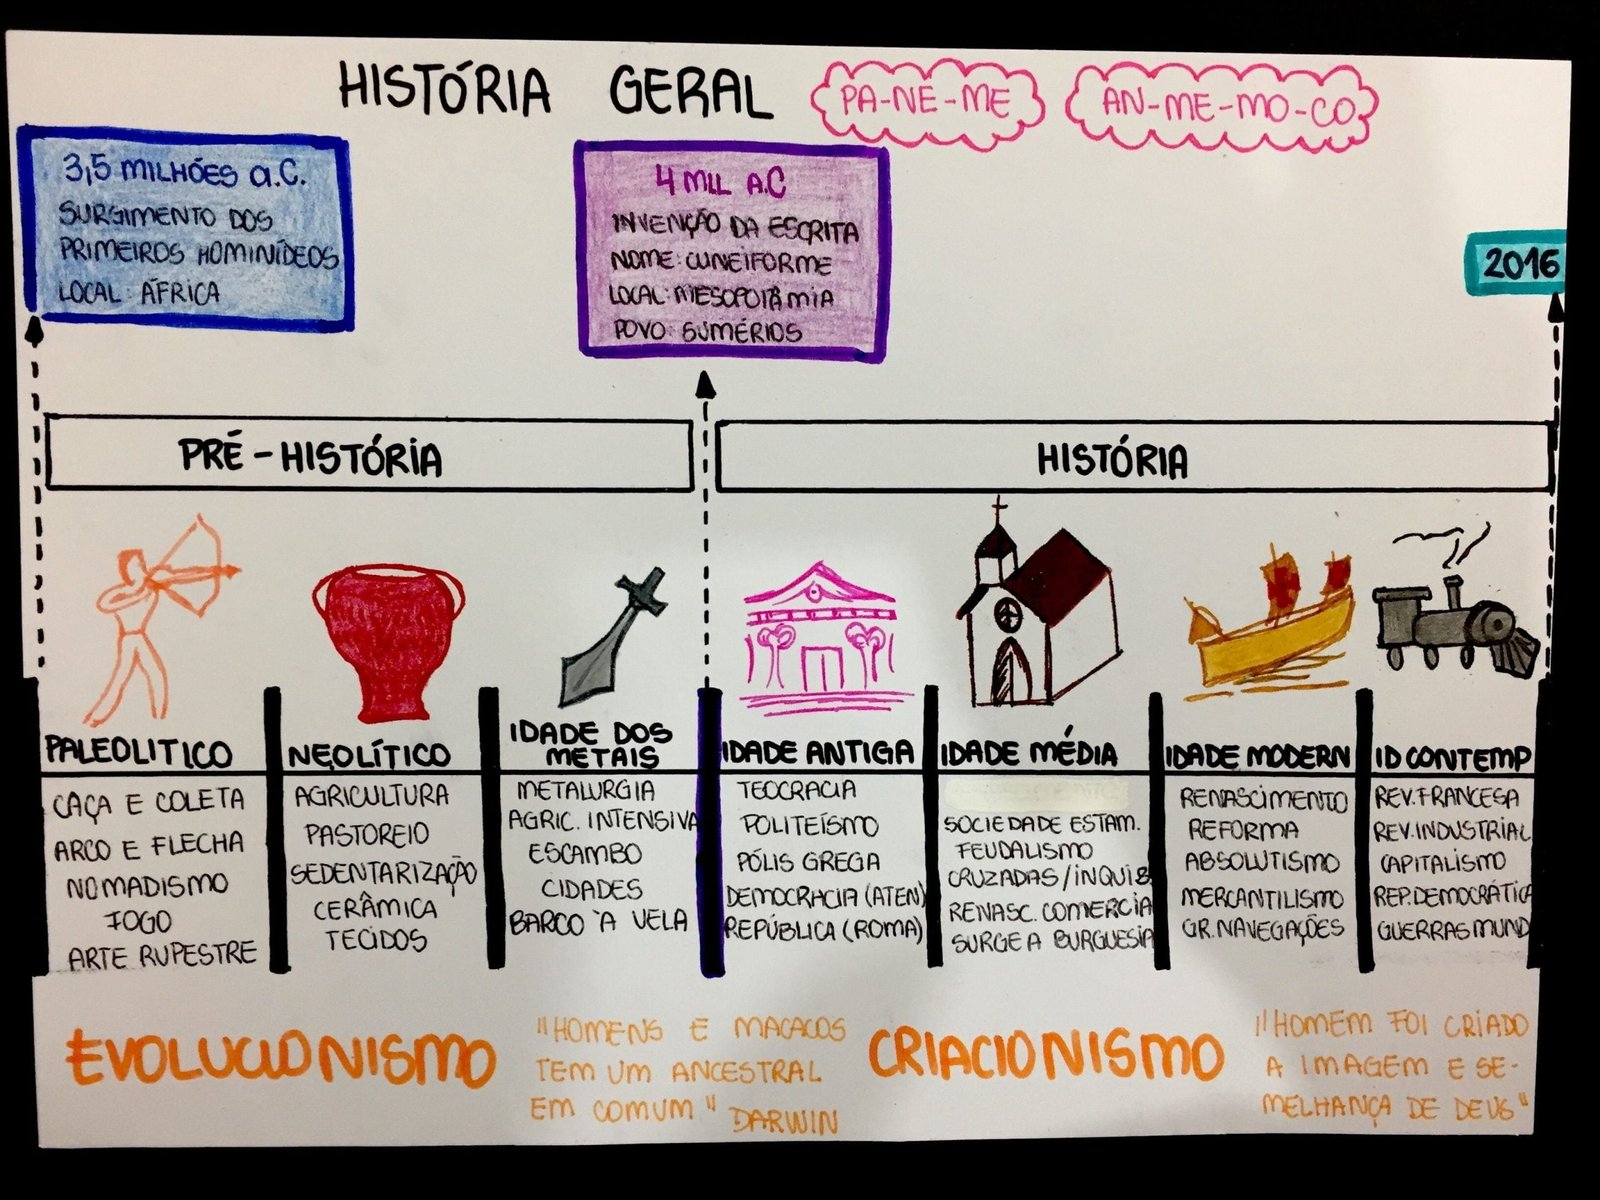 HISTÓRIA GERAL
PA-NE-ME
AN-ME-MO-CO
3,5 MILHÕES a.C.
SURGIMENTO DOS
PRIMEIROS HOMINÍDEOS
LOCAL: ÁFRICA
4 MIL A.C
INVENÇÃO DA ESCRITA
NOME: CUNEIFORME
LOCAL: MESOPOTÂMIA
POVO: SUMÉRIOS
2016
PRÉ-HISTÓRIA
HISTÓRIA
PALEOLITICO
CAÇA E COLETA
ARCO E FLECHA
NOMADISMO
FOGO
ARTE RUPESTRE
NEOLÍTICO
AGRICULTURA
PASTOREIO
SEDENTARIZAÇÃO
CERÂMICA
TECIDOS
IDADE DOS
METAIS
METALURGIA
AGRIC. INTENSIVA
ESCAMBO
CIDADES
BARCO À VELA
IDADE ANTIGA
TEOCRACIA
POLITEÍSMO
PÓLIS GREGA
DEMOCRACIA (ATEN)
REPÚBLICA (ROMA)
IDADE MÉDIA
SOCIEDADE ESTAM.
FEUDALISMO
CRUZADAS/INQUIS
RENASC. COMERCIA
SURGE A BURGUESIA
IDADE MODERN
RENASCIMENTO
REFORMA
ABSOLUTISMO
MERCANTILISMO
GR. NAVEGAÇÕES
ID CONTEMP
REV. FRANCESA
REV. INDUSTRIAL
CAPITALISMO
REP. DEMOCRÁTICA
GUERRAS MUND
EVOLUCIONISMO
"HOMENS E MACACOS
TEM UM ANCESTRAL
EM COMUM" DARWIN
CRIACIONISMO
"HOMEM FOI CRIADO
A IMAGEM E SE-
MELHANÇA DE DEUS"